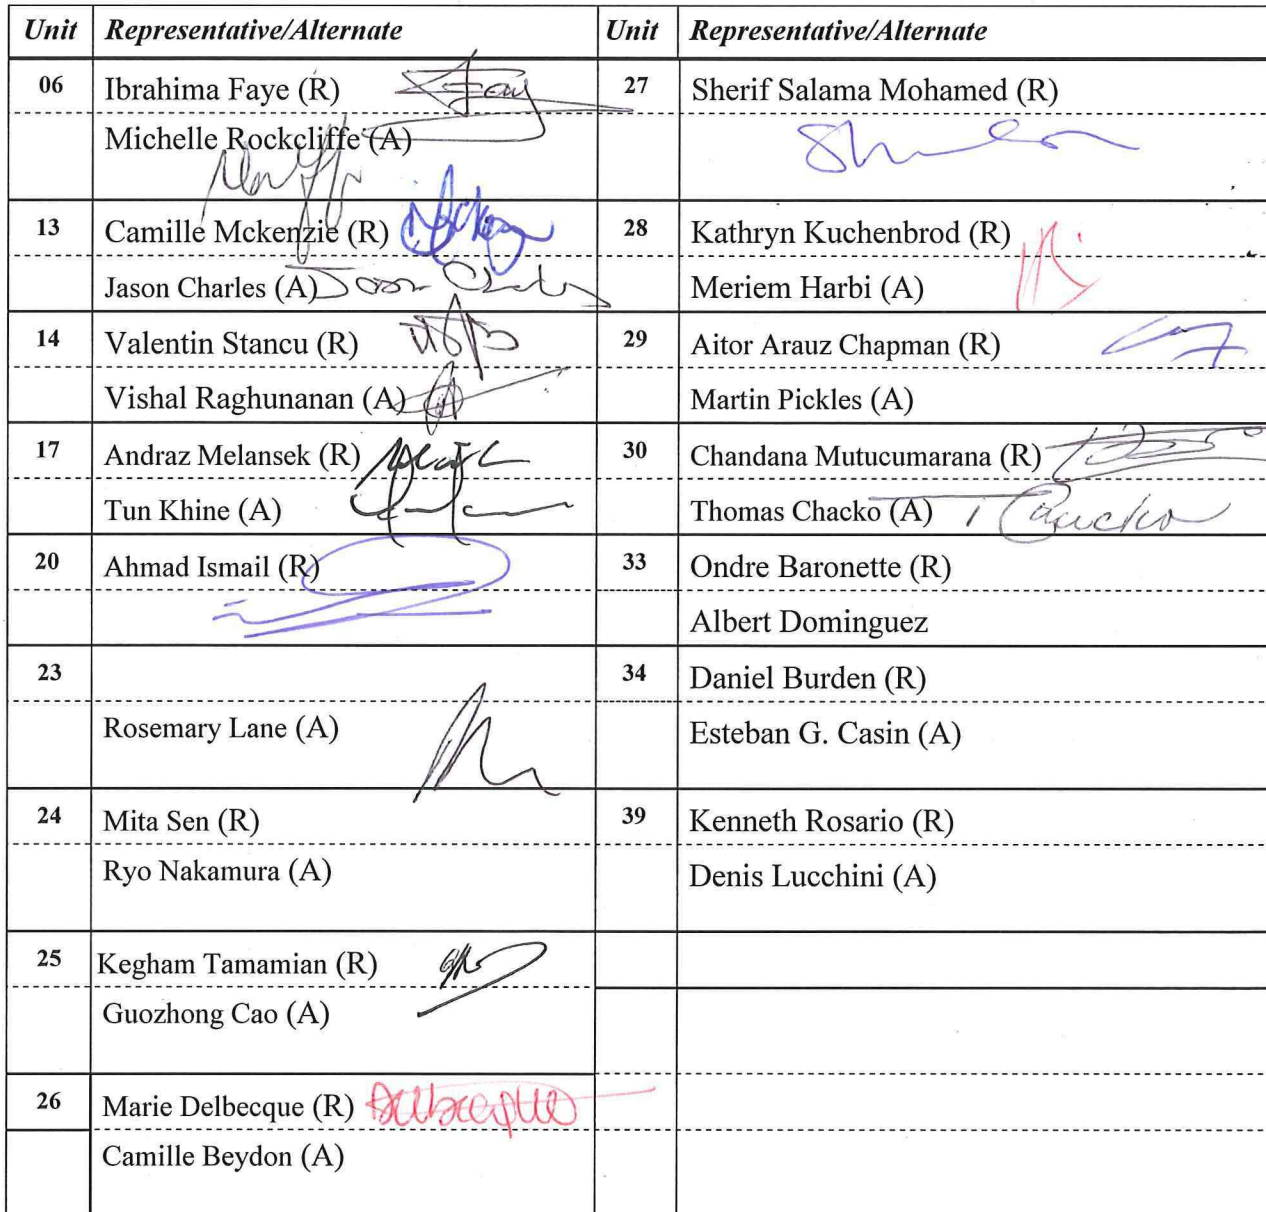 Unit Representative/Alternate Unit Representative/Alternate
06 Ibrahima Faye (R) 27 Sherif Salama Mohamed (R)
Michelle Rockcliffe (A)
13 Camille Mckenzie (R) 28 Kathryn Kuchenbrod (R)
Jason Charles (A) Jason Charles Meriem Harbi (A)
14 Valentin Stancu (R) 29 Aitor Arauz Chapman (R)
Vishal Raghunanan (A) Martin Pickles (A)
17 Andraz Melansek (R) 30 Chandana Mutucumarana (R)
Tun Khine (A) Thomas Chacko (A) TChacko
20 Ahmad Ismail (R) 33 Ondre Baronette (R)
Albert Dominguez
23 34 Daniel Burden (R)
Rosemary Lane (A) Esteban G. Casin (A)
24 Mita Sen (R) 39 Kenneth Rosario (R)
Ryo Nakamura (A) Denis Lucchini (A)
25 Kegham Tamamian (R)
Guozhong Cao (A)
26 Marie Delbecque (R) Delbecque
Camille Beydon (A)